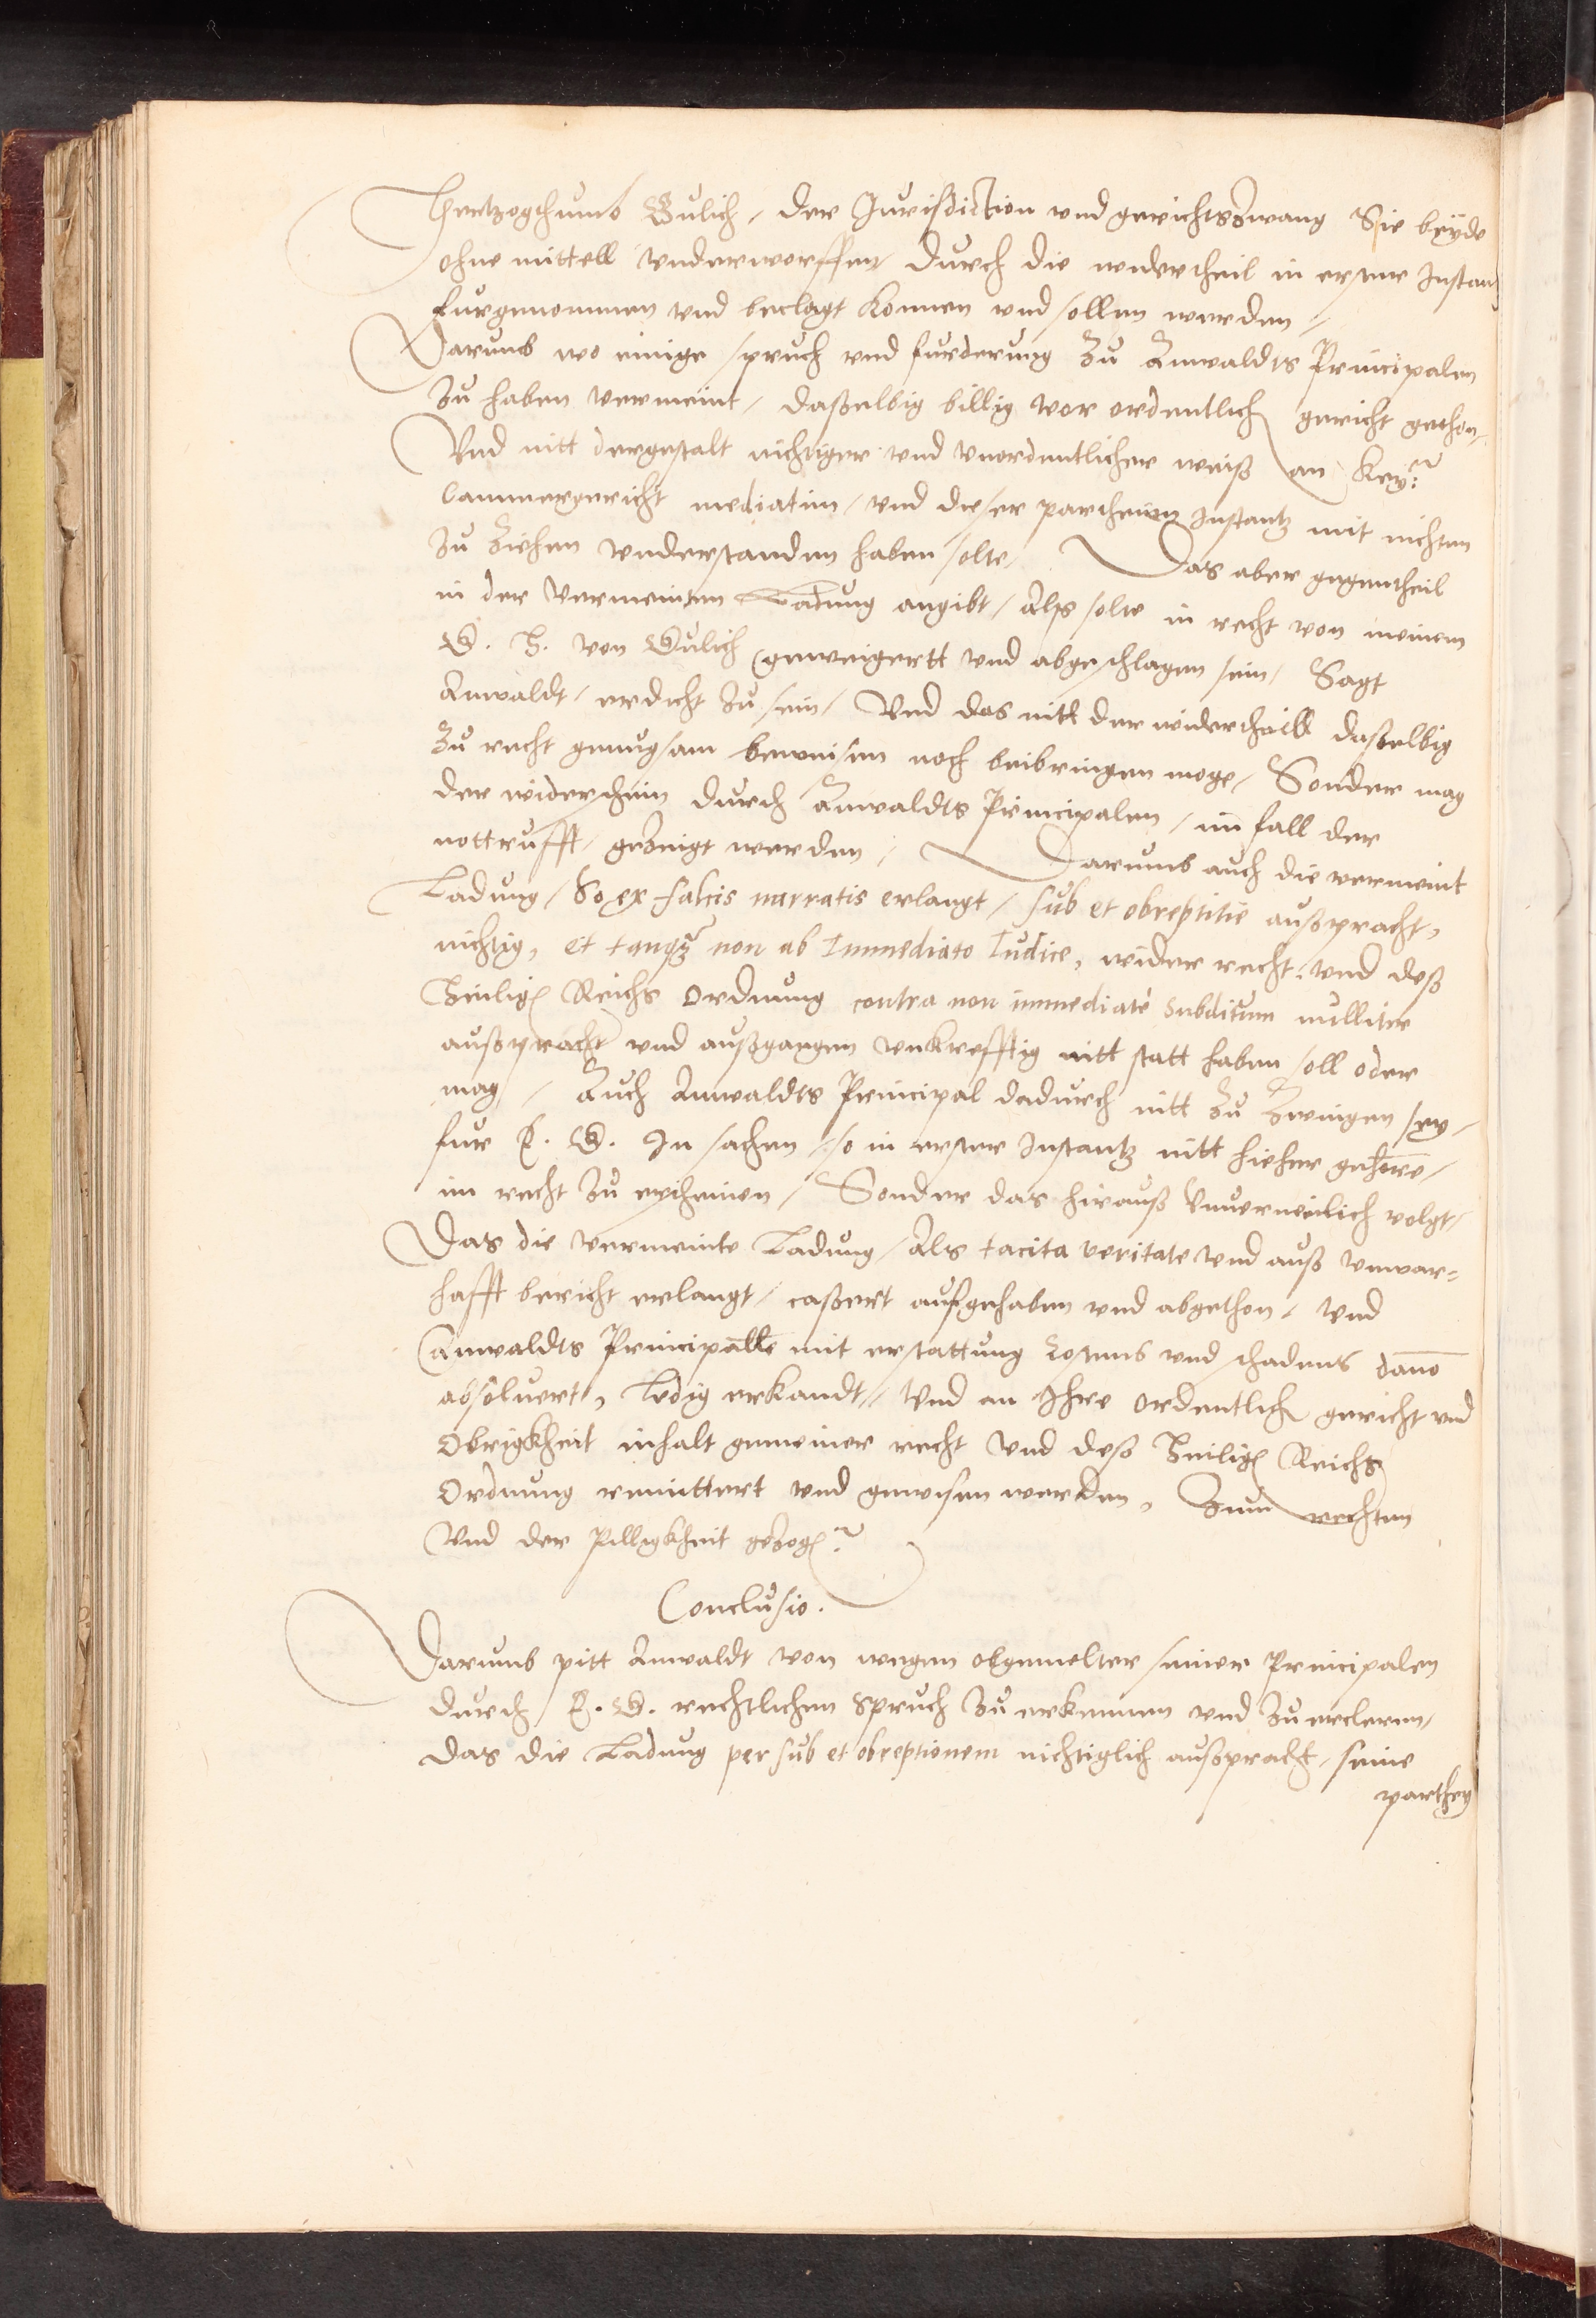 Hertzogthumb Gulich, der Jurisdiction vnd gerichtszwang Sie beyde
ohne mittell vnderworffen durch die widertheil in erster Instantz
furgenommen vnd beclagt konnen vnd sollen werden,
Darumb wo einige spruch vnd furderung zu Anwaldts Principalen
zu haben vermeint, daßelbig billig vor ordentlich gericht gethon,
Vnd nitt dergestalt nichtiger vnd vnordentlicher weiß an Key:
Cammergericht mediatim, vnd dieser partheien Instantz mit nichten
zu ziehen vnderstanden haben solte, Das aber gegentheil
in der vermeinten Ladung angibt, Alß solte in recht von meinem
G. H. von Gulich geweigertt vnd abgeschlagen sein, Sagt
Anwaldt, erdicht zu sein, Vnd das nitt der widertheill daßelbig
zu recht genugsam beweisen noch beibringen moge, Sonder mag
der widerschein durch Anwaldts Principalen, im fall der
notturfft, gezeigt werden, Darumb auch die vermeint
Ladung, So ex falsis narratis erlangt, sub et obreptitie außpracht,
nichtig, et tanq̃ non ab Immediato Iudice, wider recht vnd deß
Heilig Reichs Ordnung contra non immediate subditum nulliter
außpracht vnd außgangen vnkrefftig nitt statt haben soll oder
mag, Auch Anwaldts Principal dadurch nitt zu zwingen sey,
fur E. G. In sachen, so in erster Instantz nitt hieher gehore,
im recht zu erscheinen, Sonder das hirauß vnuerneinlich volgt,
Das die vermeinte Ladung, Als tacita veritate vnd auß vnwar=
hafft bericht erlangt, caßert auffgehaben vnd abgethon, vnd
Anwaldts Principalle mit erstattung kostens vnd schadens dauō
absoluert, ledig erkandt, Vnd an Ihre ordentlich gericht vnd
Obrigkheit inhalt gemeiner recht vnd deß Heilig Reichs
Ordnung remittert vnd gewisen werden, Zum rechten
Vnd der pilligkheit gezog
Conclusio.
Darumb pitt Anwaldt von wegen obgemelter seiner Principalen
durch E. G. rechtlichen Spruch zu erkennen vnd zu ercleren,
das die Ladung per sub et obreptionem nichtiglich außpracht, seine
parthey